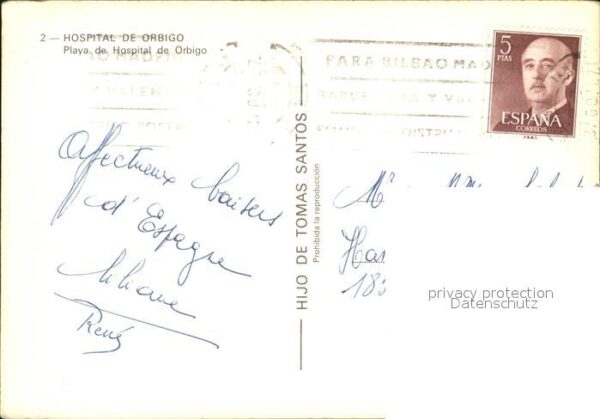 2 — HOSPITAL DE ORBIGO
Playa de Hospital de Orbigo
PARA BILBAO MAD
BARCELONA Y VAL
5
PTAS
ESPAÑA
CORREOS
Affectueux baisers
d'Espagne
Liliane
René
HIJO DE TOMAS SANTOS
Prohibida la reproducción
Har
18
privacy protection
Datenschutz